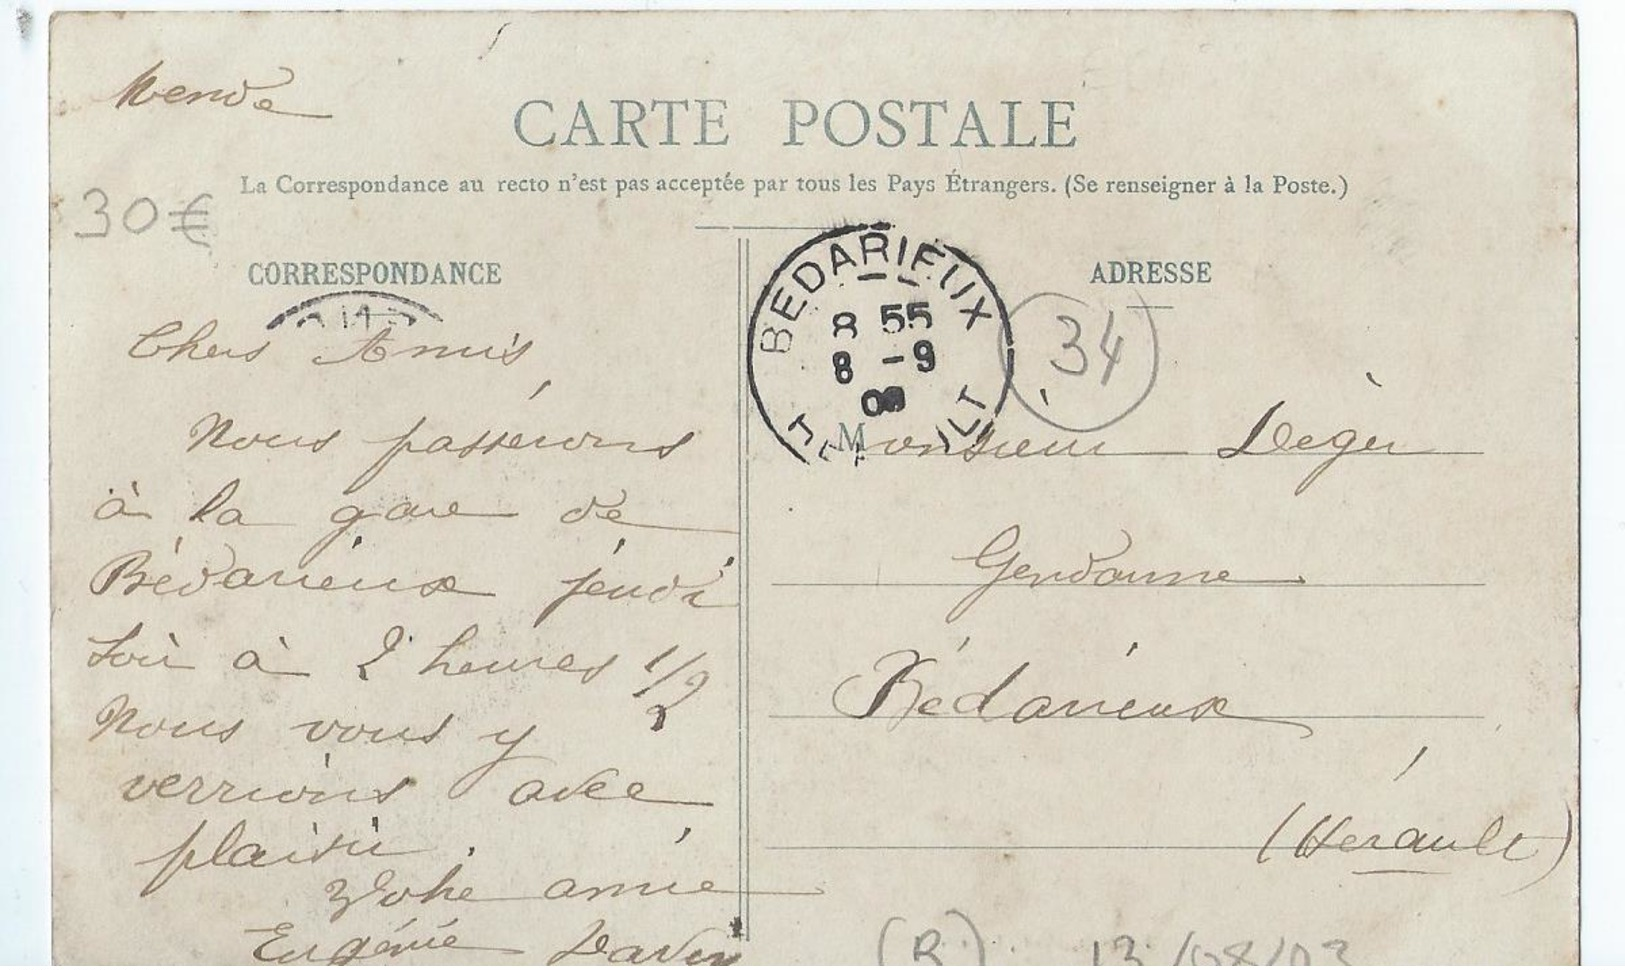 Mende
CARTE POSTALE
La Correspondance au recto n'est pas acceptée par tous les Pays Étrangers. (Se renseigner à la Poste.)
30€
CORRESPONDANCE
Chers Amis,
Nous passerons
à la gare de
Bédarieux jeudi
soir à 2 heures 1/2
Nous vous y
verrions avec
plaisir.
Votre amie
Eugénie
BEDARIEUX
8 55
8 -9
ADRESSE
34
Monsieur Léger
Gendarme
Bédarieux
(Hérault)
(R) 13/08/03